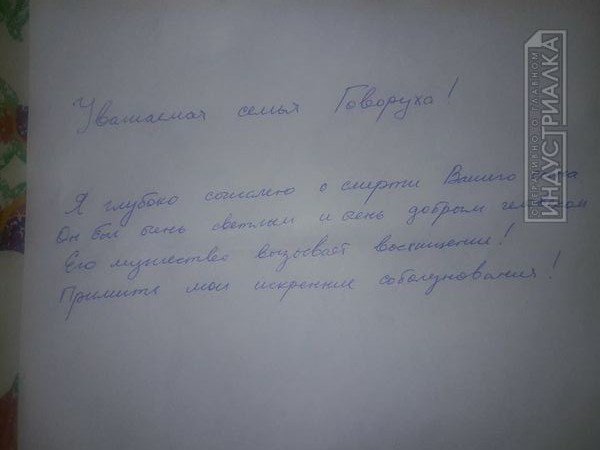 Уважаемая семья Говоруха!
Я глубоко сожалею о смерти Вашего
Он был очень светлым и очень добрым человеком
Его мужество вызывает восхищение!
Примите мои искренние соболезнования!
ОПЕРАТИВНО О ГЛАВНОМ
ИНДУСТРИАЛКА